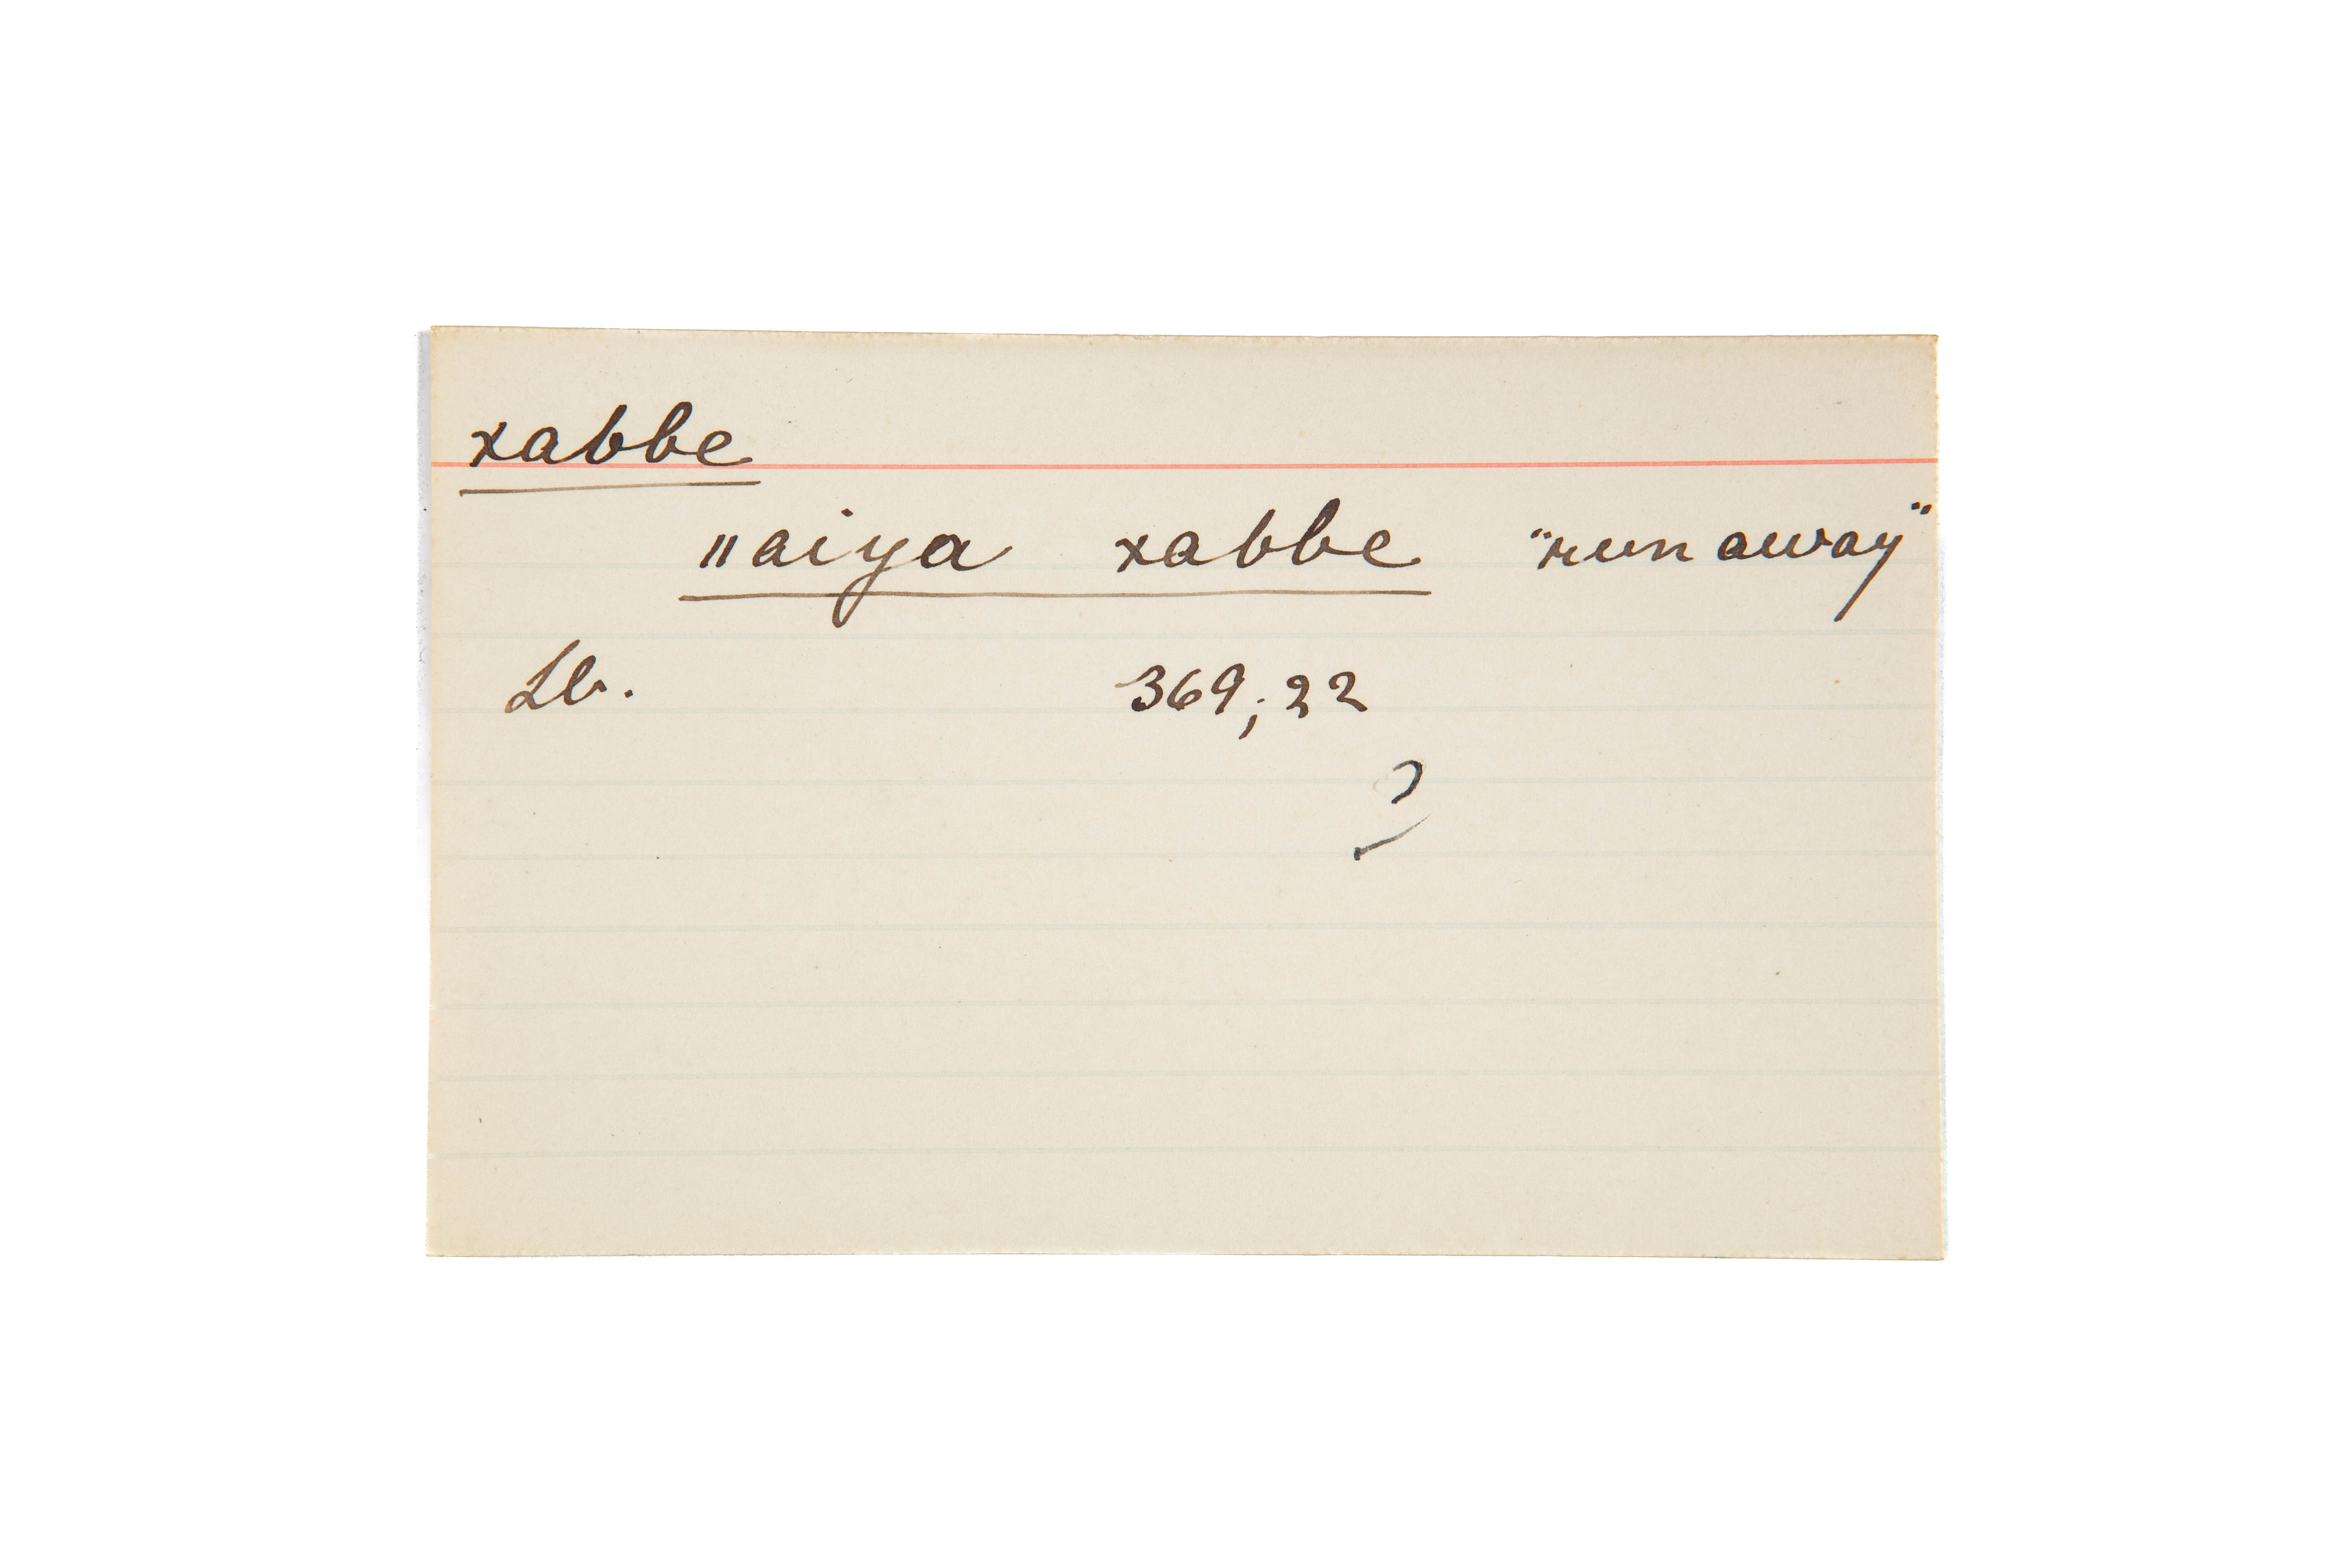 xabbe
‖aiya xabbe "run away"
Lb. 369; 22
?